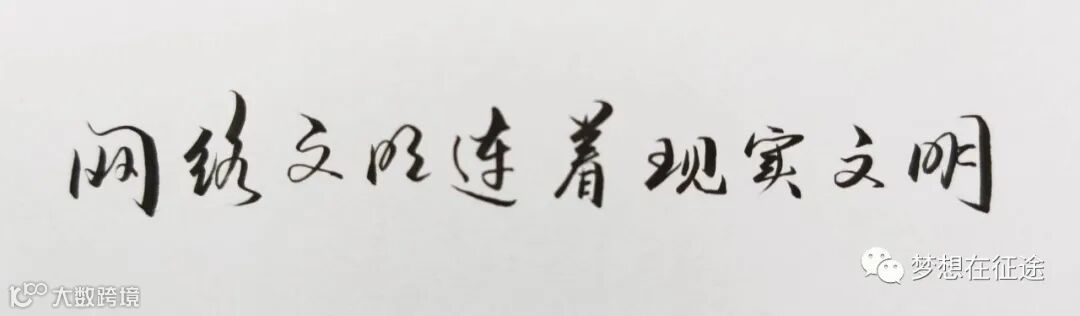 网络文明连着现实文明
梦想在征途
大数跨境